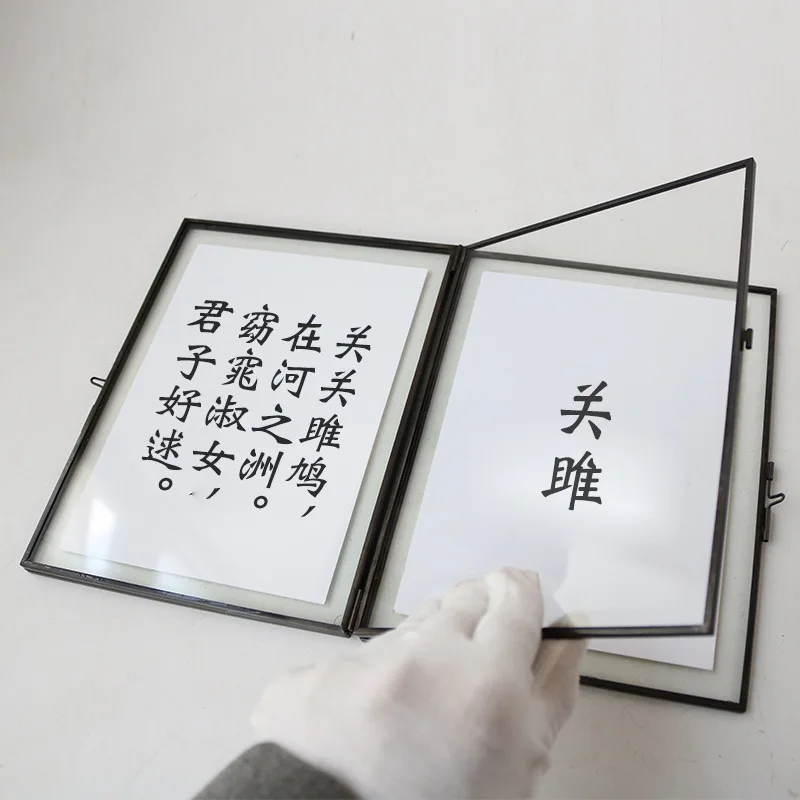 关雎
关关雎鸠，
在河之洲。
窈窕淑女，
君子好逑。